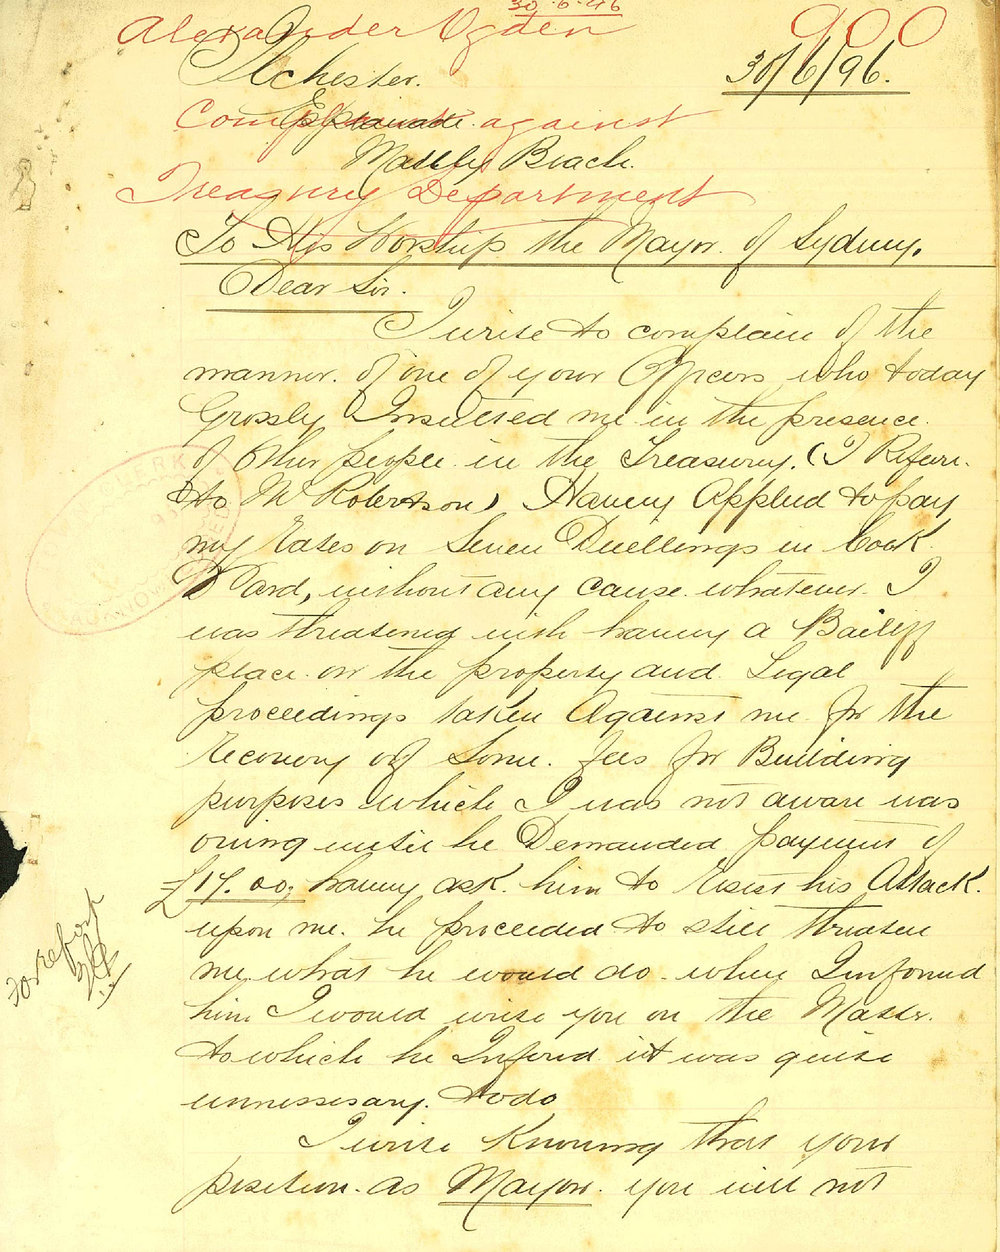 30.6.96
Alexander Ogden
900
Ilchester.
30/6/96.
Complaint against
Esplanade.
Manly Beach.
Treasury Department
To His Worship the Mayor. of Sydney.
Dear Sir.
I write to complain of the
manner. of one of your Officers who today
Grossly Insulted me in the presence.
of Other people in the Treasury. (I Refer.
to Mr Robertson) Having Applied to pay
my Rates on Seven Dwellings in Cook
Ward, without any cause whatever. I
was threatened with having a Bailiff
place on the property and Legal
proceedings taken Against me for the
recovery of Some. fees for Building
purposes which I was not aware was
owing untill he Demanded payment of
£17.00, having ask. him to Resist his Attack.
upon me. he proceeded to still threaten
me what he would do. when I informed
him I would write you on the Matter.
to which he Inford it was quite
unnessesary. to do
I write Knowing that your
position. as Mayor. you will not
For report
CLERK
ACKNOWLEDGED